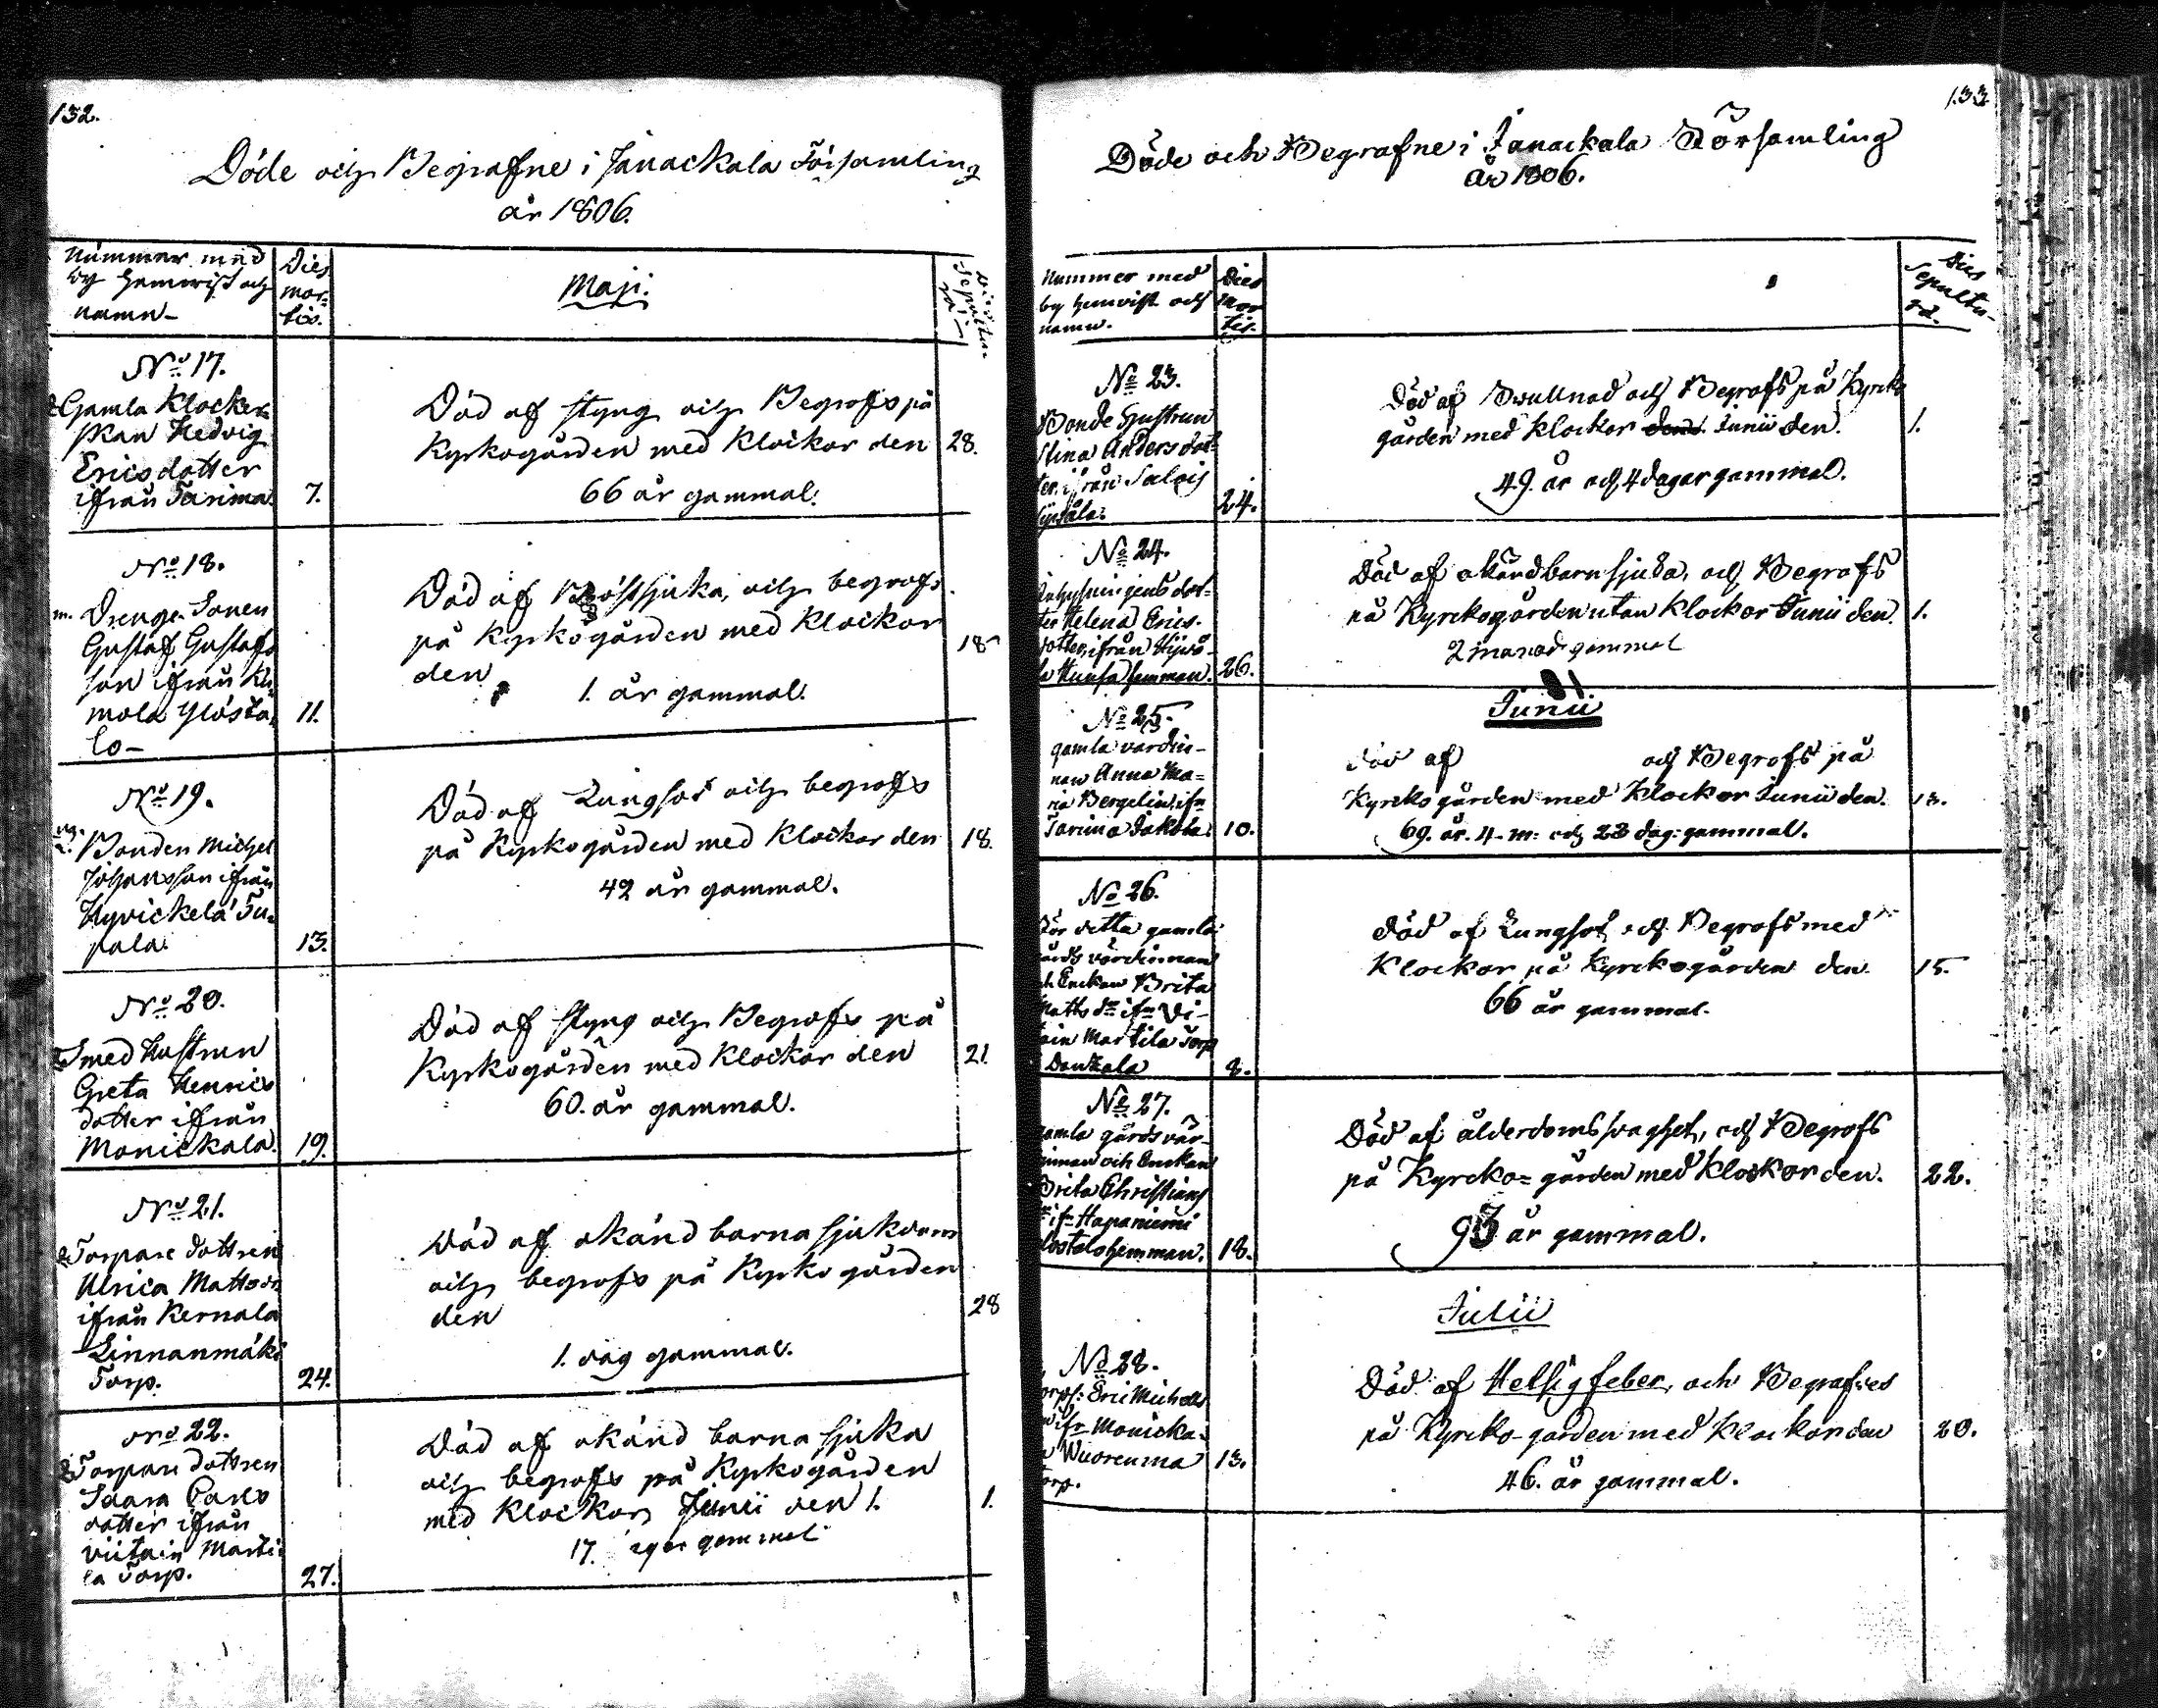 132.
Döde och Begrafne i Janackala Församling
år 1806.
Nummer med
by hemvist och
namn
Dies
mor-
tis.
Maji.
Dies
Sepultu-
ræ
No 17.
Gamla Klocker-
skan Hedvig
Ericsdotter
ifrån Tarima.
7.
Död af styng och Begrofs på
Kyrkogården med Klockor den
66 år gammal.
28.
No 18.
m. Drenge Sonen
Gustaf Gustafs
son ifrån Ku-
mola Ylösta-
lo-
11.
Död af Bröstsjuka, och begrofs
på Kyrkogården med Klockor
den
1. år gammal.
18
No 19.
Bonden Michel
Johansson ifrån
Hyvickelä Tu-
pala.
13.
Död af Lungsot och begrofs
på Kyrkogården med Klockor den
42 år gammal.
18.
No 20.
Smed Hustrun
Greta Henrics
dotter ifrån
Monickala.
19.
Död af styng och Begrofs på
Kyrkogården med Klockor den
60. år gammal.
21.
No 21.
Torpare dottren
Ulrica Matts dr
ifrån Kernala
Linnanmäki
Torp.
24.
Död af okänd barna sjukdom
och begrofs på Kyrko gården
den
1. dag gammal.
28
No 22.
Torpare dottren
Saara Carls
dotter ifrån
Viitain Marti-
la Torp.
27.
Död af okänd barna sjuka
och begrofs på Kyrkogården
med Klockor, Junii den 1.
17. gammal
1.
133
Döde och Begrafne i Janackala Församling
år 1806.
Nummer med
by hemvist och
namn.
Dies
mor
tis.
Dies
Sepultu-
ræ.
No 23.
Bonde Hustrun
Stina Anders dot-
ter ifrån Salois
24.
Död af Svullnad och Begrofs på Kyrko
gården med Klockor den Junii den.
49. år och 4 dagar gammal.
1.
No 24.
Inhysningens dot-
ter Helena Erics-
dotter, ifrån
hemman.
26.
Död af okänd barn sjuka, och Begrofs
på Kyrckogården utan Klockor Junii den.
2 månad gammal
1.
Junii
No 25.
gamla värdin-
nan Anna Ma-
ria Bergelin, ifn
Tarima Jakola.
10.
död af och Begrofs på
Kyrcko gården med Klockor Junii den.
69. år. 4. m: och 23 dag: gammal.
13.
No 26.
För detta gamla
gårds värdinnan
och Enckan Brita
Matts dr ifn Vi-
tain Martila Torp
8.
Död af Lungsot och Begrofs med
Klockor på Kyrckogården den.
66 år gammal.
15.
No 27.
gamla gårds vär-
dinnan och Enckan
Brita Christians
ifn Haganiemi
hemman.
18.
Död af ålderdoms svaghet, och Begrofs
på Kyrcko= gården med Klockor den.
93 år gammal.
22.
Julii
No 28.
Torp: Eric Michels
ifn Monicka-
la Wuorenma
Torp.
13.
Död af Hetsigfeber, och Begrafves
på Kyrcko-gården med Klockor den
46. år gammal.
20.